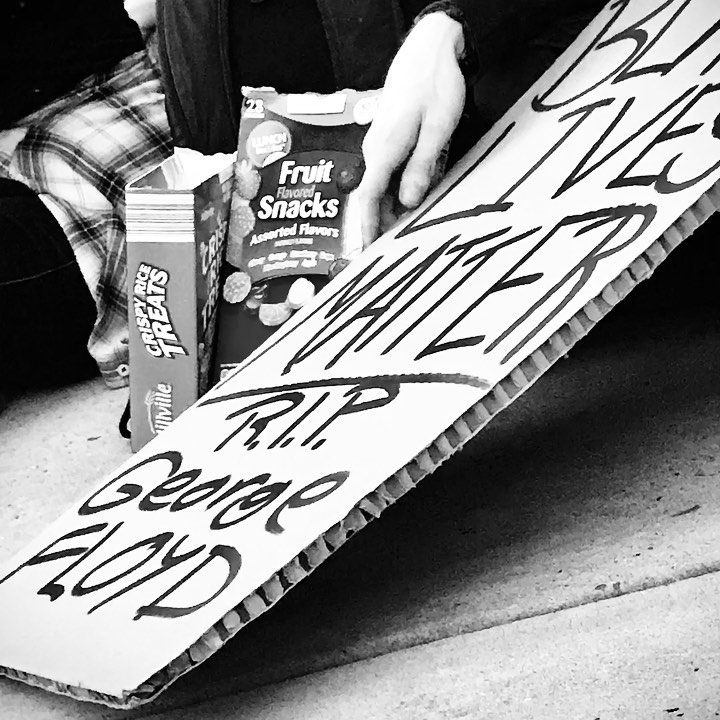 BL
LIVES
MATTER
R.I.P
George
FLOYD
28
LUNCH
Fruit
Flavored
Snacks
Assorted Flavors
CRISPY RICE
TREATS
illville